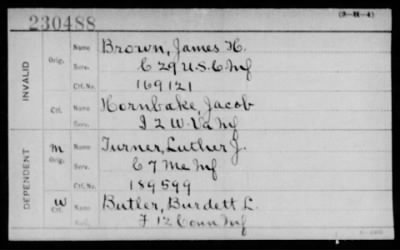 230488
(3-H-4)
INVALID
Orig.
Name Brown, James H.
Serv. C 29 U.S.C Inf
Ctf. No. 169121
Ctf.
Name Hornbake, Jacob
Serv. I 2 W. Va Inf
DEPENDENT
M
Orig.
Name Turner, Luther J.
Serv. C 7 Me Inf
Ctf. No. 189599
W
Ctf.
Name Butler, Burdett L.
F 12 Conn Inf